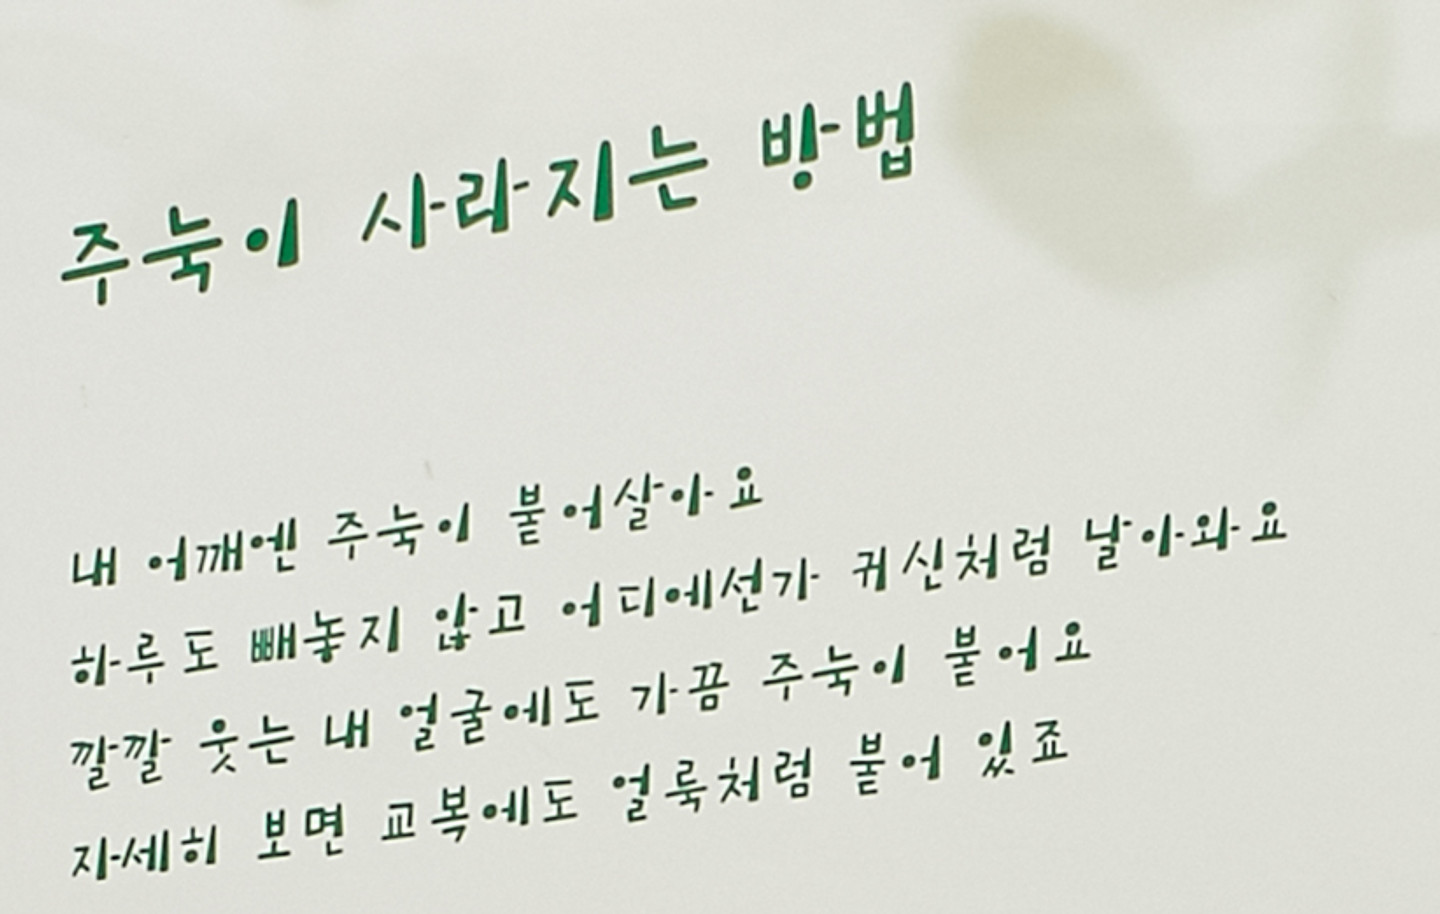 주눅이 사라지는 방법
내 어깨엔 주눅이 붙어살아요
하루도 빼놓지 않고 어디에선가 귀신처럼 날아와요
깔깔 웃는 내 얼굴에도 가끔 주눅이 붙어요
자세히 보면 교복에도 얼룩처럼 붙어 있죠